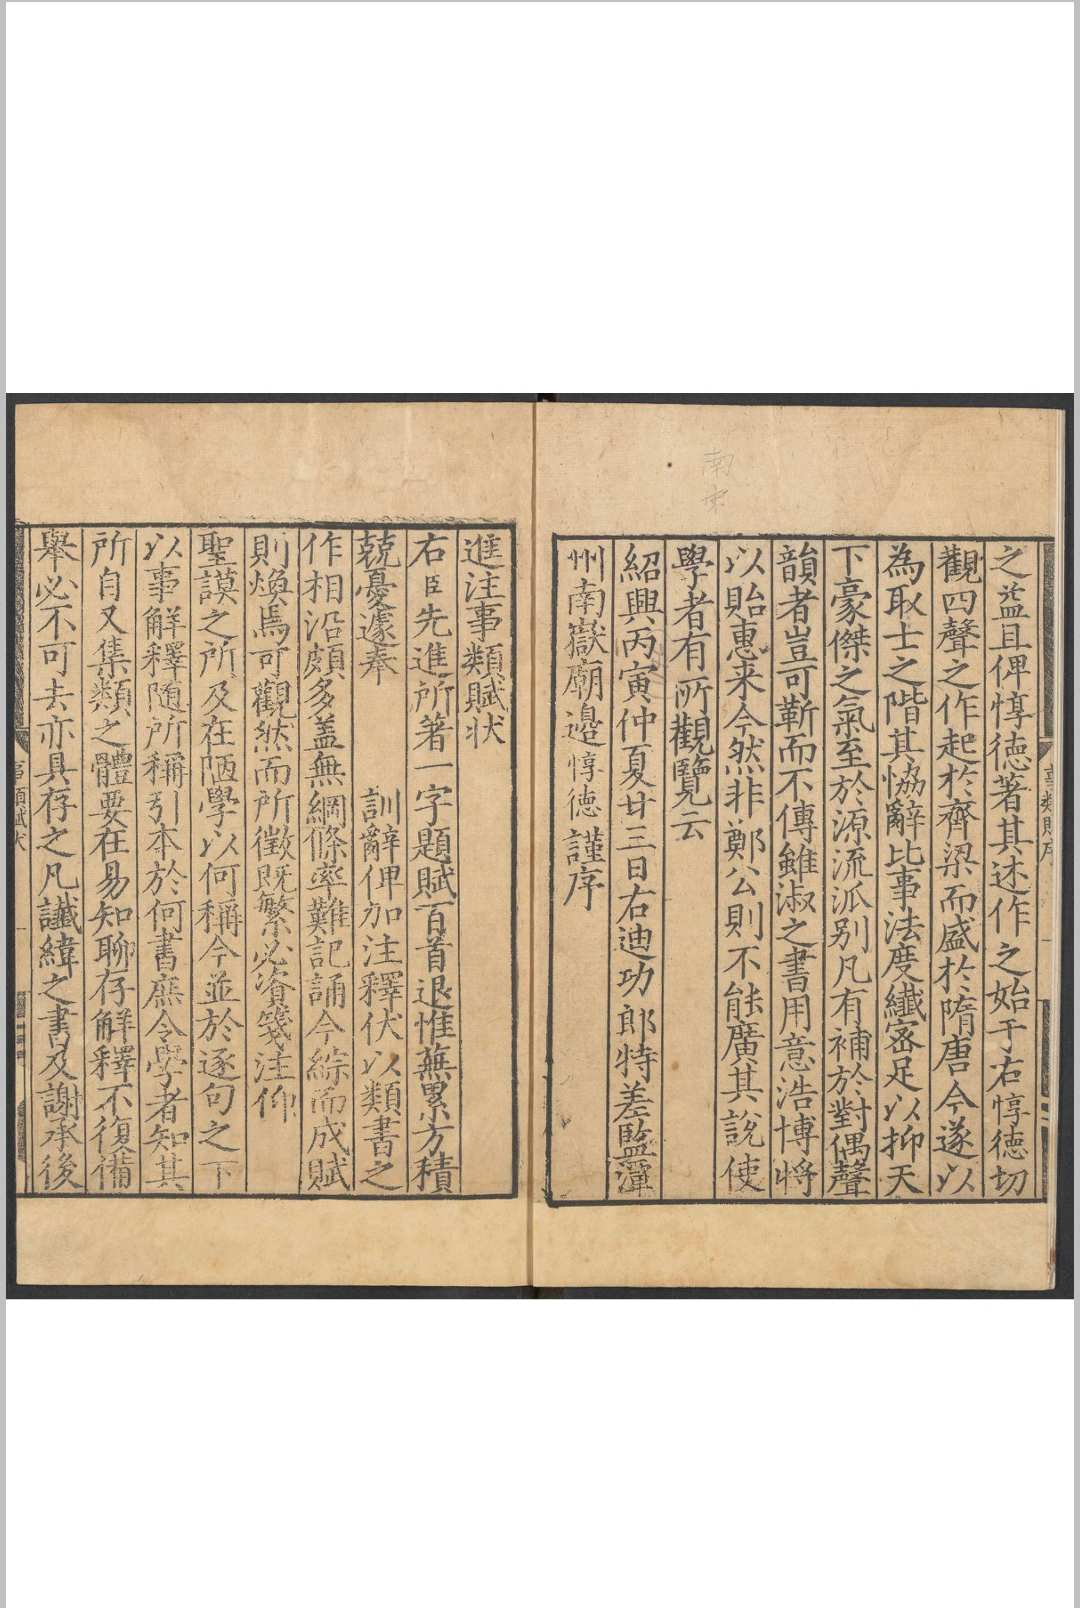 之益且俾惇德著其述作之始于右惇德切
觀四聲之作起於齊梁而盛於隋唐今遂以
為取士之階其恊辭比事法度纖密足以抑天
下豪傑之氣至於源流派别凡有補於對偶聲
韻者豈可靳而不傳雖淑之書用意浩博將
以貽惠来今然非鄭公則不能廣其說使
學者有所觀覽云
紹興丙寅仲夏廿三日右迪功郎特差監潭
州南嶽廟邉惇德謹序
進注事類賦状
右臣先進所著一字題賦百首退惟蕪累方積
兢憂遽奉
訓辭俾加注釋伏以類書之
作相沿頗多盖無綱條率難記誦今綜而成賦
則煥焉可觀然而所徵既繁必資箋注仰
聖謨之所及在陋學以何稱今並於逐句之下
以事解釋随所稱引本於何書庶令學者知其
所自又集類之體要在易知聊存解釋不復備
舉必不可去亦具存之凡讖緯之書及謝承後
事類賦序
事類賦状
南